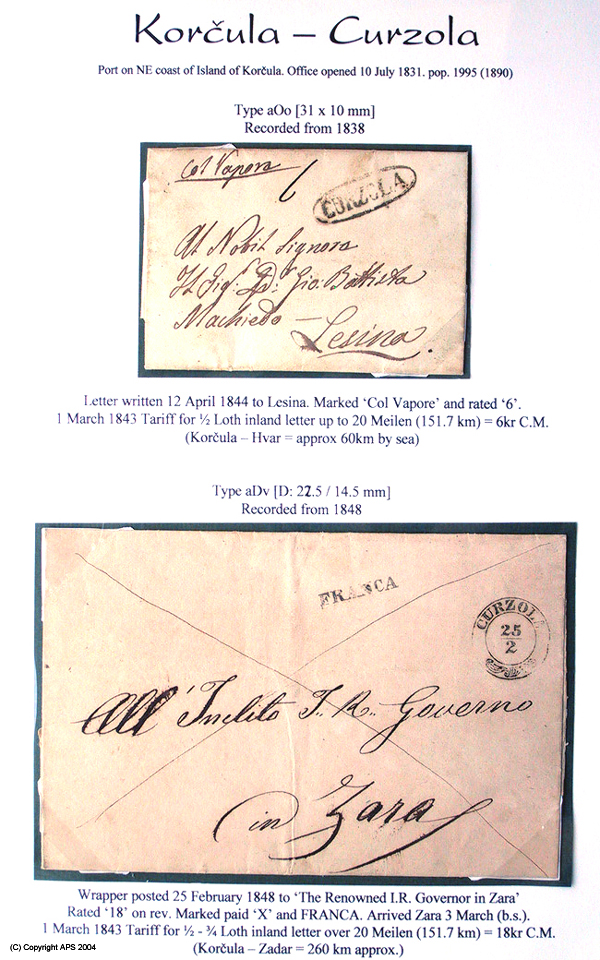 Korčula – Curzola
Port on NE coast of Island of Korčula. Office opened 10 July 1831. pop. 1995 (1890)
Type aOo [31 x 10 mm]
Recorded from 1838
Col Vapore
6
CURZOLA
Al Nobil Signore
Il Sigr. Gio: Battista
Machiedo –
Lesina.
Letter written 12 April 1844 to Lesina. Marked ‘Col Vapore’ and rated ‘6’.
1 March 1843 Tariff for ½ Loth inland letter up to 20 Meilen (151.7 km) = 6kr C.M.
(Korčula – Hvar = approx 60km by sea)
Type aDv [D: 22.5 / 14.5 mm]
Recorded from 1848
FRANCA
CURZOLA
25
2
All' Inclito I. R. Governo
in Zara
Wrapper posted 25 February 1848 to ‘The Renowned I.R. Governor in Zara’
Rated ‘18’ on rev. Marked paid ‘X’ and FRANCA. Arrived Zara 3 March (b.s.).
1 March 1843 Tariff for ½ - ¾ Loth inland letter over 20 Meilen (151.7 km) = 18kr C.M.
(Korčula – Zadar = 260 km approx.)
(C) Copyright APS 2004